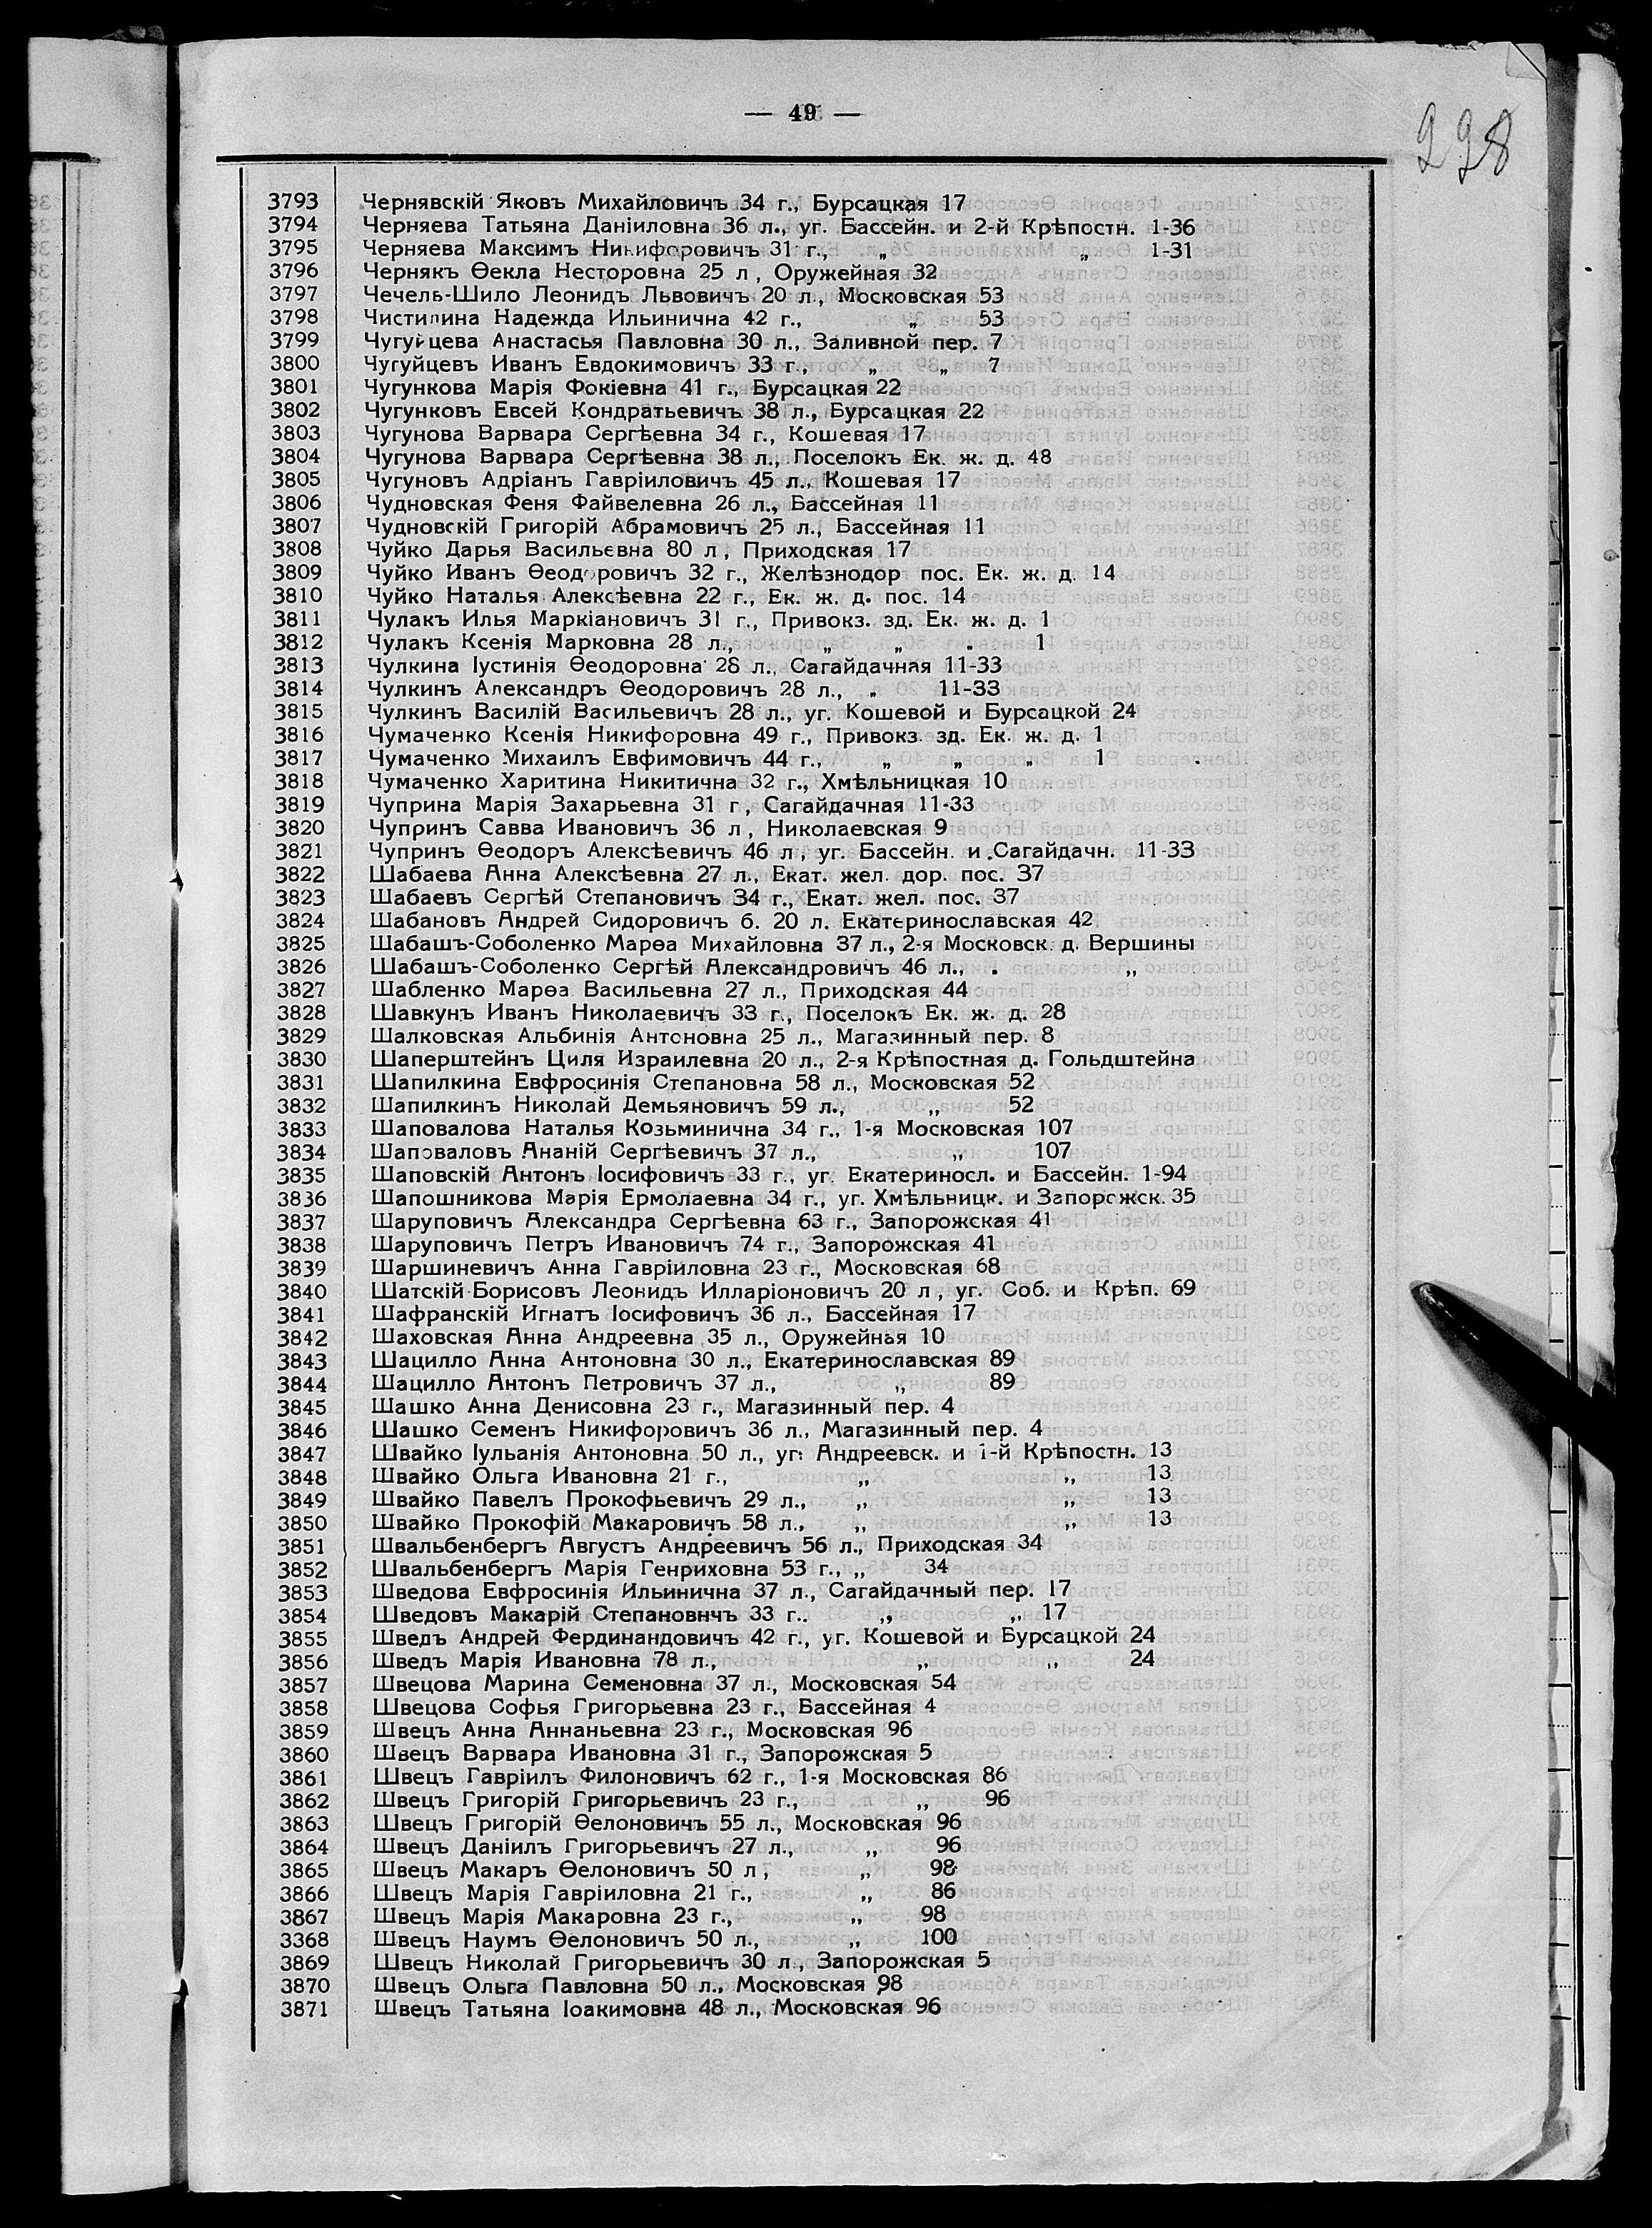 — 49 —
298
3793 Чернявскій Яковъ Михайловичъ 34 г., Бурсацкая 17
3794 Черняева Татьяна Даніиловна 36 л., уг. Бассейн. и 2-й Крѣпостн. 1-36
3795 Черняева Максимъ Никифоровичъ 31 г., „ „ 1-31
3796 Чернякъ Ѳекла Несторовна 25 л , Оружейная 32
3797 Чечель-Шило Леонидъ Львовичъ 20 л., Московская 53
3798 Чистилина Надежда Ильинична 42 г., „ 53
3799 Чугуйцева Анастасья Павловна 30 л., Заливной пер. 7
3800 Чугуйцевъ Иванъ Евдокимовичъ 33 г., „ „ 7
3801 Чугункова Марія Фокіевна 41 г., Бурсацкая 22
3802 Чугунковъ Евсей Кондратьевичъ 38 л., Бурсацкая 22
3803 Чугунова Варвара Сергѣевна 34 г., Кошевая 17
3804 Чугунова Варвара Сергѣевна 38 л., Поселокъ Ек. ж. д. 48
3805 Чугуновъ Адріанъ Гавріиловичъ 45 л., Кошевая 17
3806 Чудновская Феня Файвелевна 26 л., Бассейная 11
3807 Чудновскій Григорій Абрамовичъ 25 л., Бассейная 11
3808 Чуйко Дарья Васильевна 80 л , Приходская 17
3809 Чуйко Иванъ Ѳеодоровичъ 32 г., Желѣзнодор пос. Ек. ж. д. 14
3810 Чуйко Наталья Алексѣевна 22 г., Ек. ж. д. пос. 14
3811 Чулакъ Илья Маркіановичъ 31 г., Привокз. зд. Ек. ж. д. 1
3812 Чулакъ Ксенія Марковна 28 л., „ „ „ 1
3813 Чулкина Іустинія Ѳеодоровна 28 л., Сагайдачная 11-33
3814 Чулкинъ Александръ Ѳеодоровичъ 28 л., „ 11-33
3815 Чулкинъ Василій Васильевичъ 28 л., уг. Кошевой и Бурсацкой 24
3816 Чумаченко Ксенія Никифоровна 49 г., Привокз. зд. Ек. ж. д. 1
3817 Чумаченко Михаилъ Евфимовичъ 44 г., „ „ „ 1
3818 Чумаченко Харитина Никитична 32 г., Хмѣльницкая 10
3819 Чуприна Марія Захарьевна 31 г , Сагайдачная 11-33
3820 Чупринъ Савва Ивановичъ 36 л , Николаевская 9
3821 Чупринъ Ѳеодоръ Алексѣевичъ 46 л , уг. Бассейн. и Сагайдачн. 11-33
3822 Шабаева Анна Алексѣевна 27 л., Екат. жел. дор. пос. 37
3823 Шабаевъ Сергѣй Степановичъ 34 г., Екат. жел. пос. 37
3824 Шабановъ Андрей Сидоровичъ б. 20 л. Екатеринославская 42
3825 Шабашъ-Соболенко Марѳа Михайловна 37 л., 2-я Московск. д. Вершины
3826 Шабашъ-Соболенко Сергѣй Александровичъ 46 л., „ „
3827 Шабленко Марѳа Васильевна 27 л., Приходская 44
3828 Шавкунъ Иванъ Николаевичъ 33 г., Поселокъ Ек. ж. д. 28
3829 Шалковская Альбинія Антоновна 25 л., Магазинный пер. 8
3830 Шаперштейнъ Циля Израилевна 20 л., 2-я Крѣпостная д. Гольдштейна
3831 Шапилкина Евфросинія Степановна 58 л., Московская 52
3832 Шапилкинъ Николай Демьяновичъ 59 л., „ 52
3833 Шаповалова Наталья Козьминична 34 г., 1-я Московская 107
3834 Шаповаловъ Ананій Сергѣевичъ 37 л., „ 107
3835 Шаповскій Антонъ Іосифовичъ 33 г., уг. Екатеринοсл. и Бассейн. 1-94
3836 Шапошникова Марія Ермолаевна 34 г., уг. Хмѣльницк. и Запорожск. 35
3837 Шаруповичъ Александра Сергѣевна 63 г., Запорожская 41
3838 Шаруповичъ Петръ Ивановичъ 74 г., Запорожская 41
3839 Шаршиневичъ Анна Гавріиловна 23 г., Московская 68
3840 Шатскій-Борисовъ Леонидъ Илларіоновичъ 20 л , уг. Соб. и Крѣп. 69
3841 Шафранскій Игнатъ Іосифовичъ 36 л., Бассейная 17
3842 Шаховская Анна Андреевна 35 л., Оружейная 10
3843 Шацилло Анна Антоновна 30 л., Екатеринославская 89
3844 Шацилло Антонъ Петровичъ 37 л., „ 89
3845 Шашко Анна Денисовна 23 г., Магазинный пер. 4
3846 Шашко Семенъ Никифоровичъ 36 л., Магазинный пер. 4
3847 Швайко Іульанія Антоновна 50 л., уг. Андреевск. и 1-й Крѣпостн. 13
3848 Швайко Ольга Ивановна 21 г., „ „ 13
3849 Швайко Павелъ Прокофьевичъ 29 л., „ „ 13
3850 Швайко Прокофій Макаровичъ 58 л., „ „ 13
3851 Швальбенбергъ Августъ Андреевичъ 56 л., Приходская 34
3852 Швальбенбергъ Марія Генриховна 53 г., „ 34
3853 Шведова Евфросинія Ильинична 37 л., Сагайдачный пер. 17
3854 Шведовъ Макарій Степановнчъ 33 г.. „ „ 17
3855 Шведъ Андрей Фердинандовичъ 42 г., уг. Кошевой и Бурсацкой 24
3856 Шведъ Марія Ивановна 78 л., „ „ 24
3857 Швецова Марина Семеновна 37 л., Московская 54
3858 Швецова Софья Григорьевна 23 г., Бассейная 4
3859 Швецъ Анна Аннаньевна 23 г., Московская 96
3860 Швецъ Варвара Ивановна 31 г., Запорожская 5
3861 Швецъ Гавріилъ Филоновичъ 62 г., 1-я Московская 86
3862 Швецъ Григорій Григорьевичъ 23 г., „ 96
3863 Швецъ Григорій Ѳелоновичъ 55 л., Московская 96
3864 Швецъ Даніилъ Григорьевичъ 27 л., „ 96
3865 Швецъ Макаръ Ѳелоновичъ 50 л , „ 98
3866 Швецъ Марія Гавріиловна 21 г., „ 86
3867 Швецъ Марія Макаровна 23 г., „ 98
3368 Швецъ Наумъ Ѳелоновичъ 50 л., „ 100
3869 Швецъ Николай Григорьевичъ 30 л., Запорожская 5
3870 Швецъ Ольга Павловна 50 л., Московская 98
3871 Швецъ Татьяна Іоакимовна 48 л., Московская 96